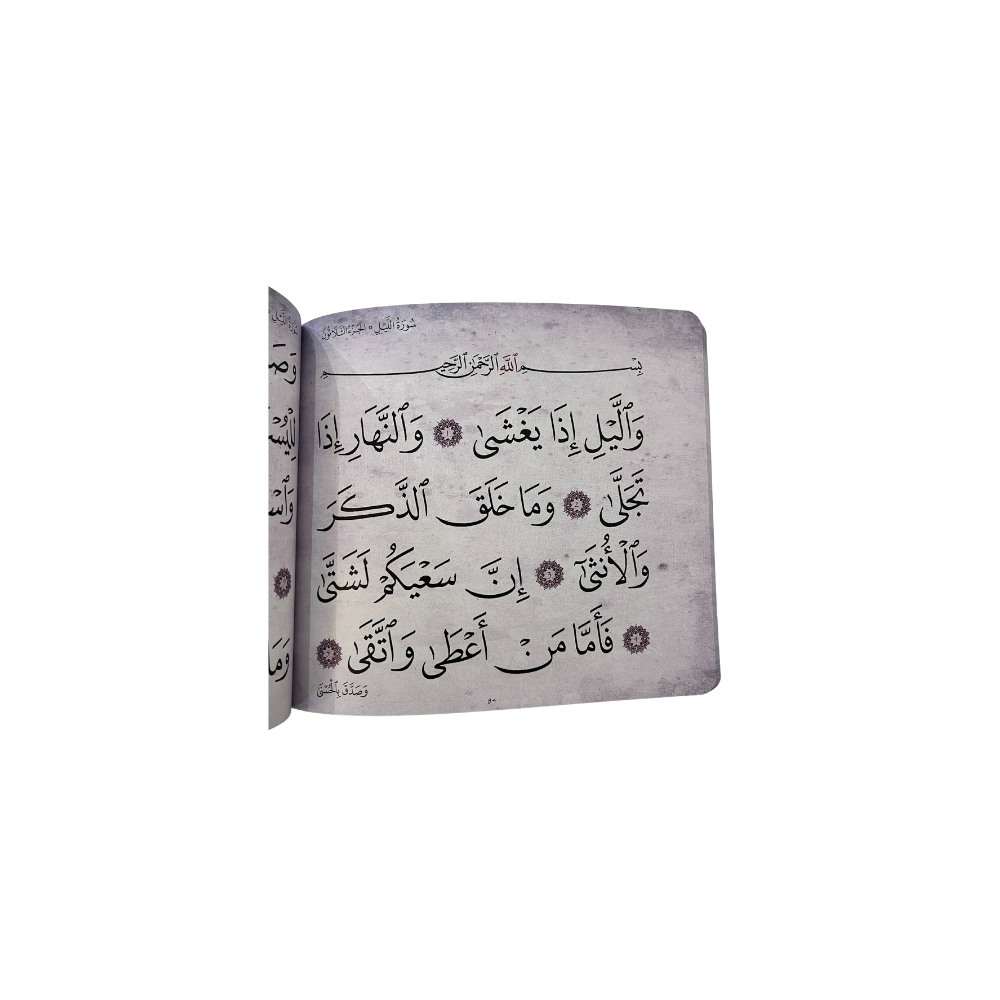 سُورَةُ اللَّيْلِ ٥ الجُزءُ الثَّلَاثُونَ
بِسْمِ ٱللَّهِ ٱلرَّحْمَٰنِ ٱلرَّحِيمِ
وَٱلَّيْلِ إِذَا يَغْشَىٰ ١ وَٱلنَّهَارِ إِذَا
تَجَلَّىٰ ٢ وَمَا خَلَقَ ٱلذَّكَرَ
وَٱلْأُنثَىٰٓ ٣ إِنَّ سَعْيَكُمْ لَشَتَّىٰ
٤ فَأَمَّا مَنْ أَعْطَىٰ وَٱتَّقَىٰ ٥
وَصَدَّقَ بِٱلْحُسْنَىٰ